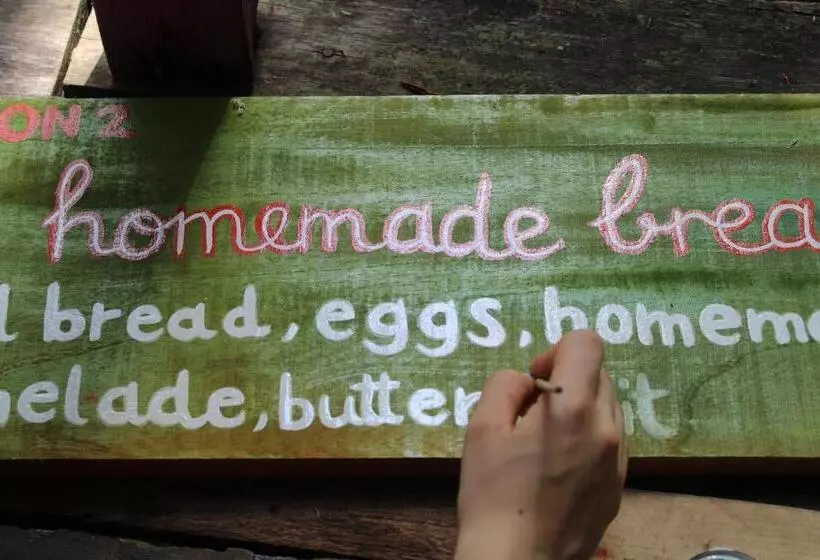 ON 2
homemade brea
l bread, eggs, homema
elade, butter it